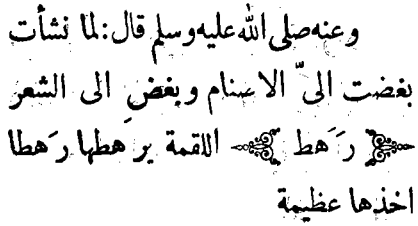 وعنه صلى الله عليه وسلم قال: لما نشأت
بغضت الىّ الاصنام وبغضِ الى الشعر
رَهَط اللقمة يرهطها رَهطا
اخذها عظيمة